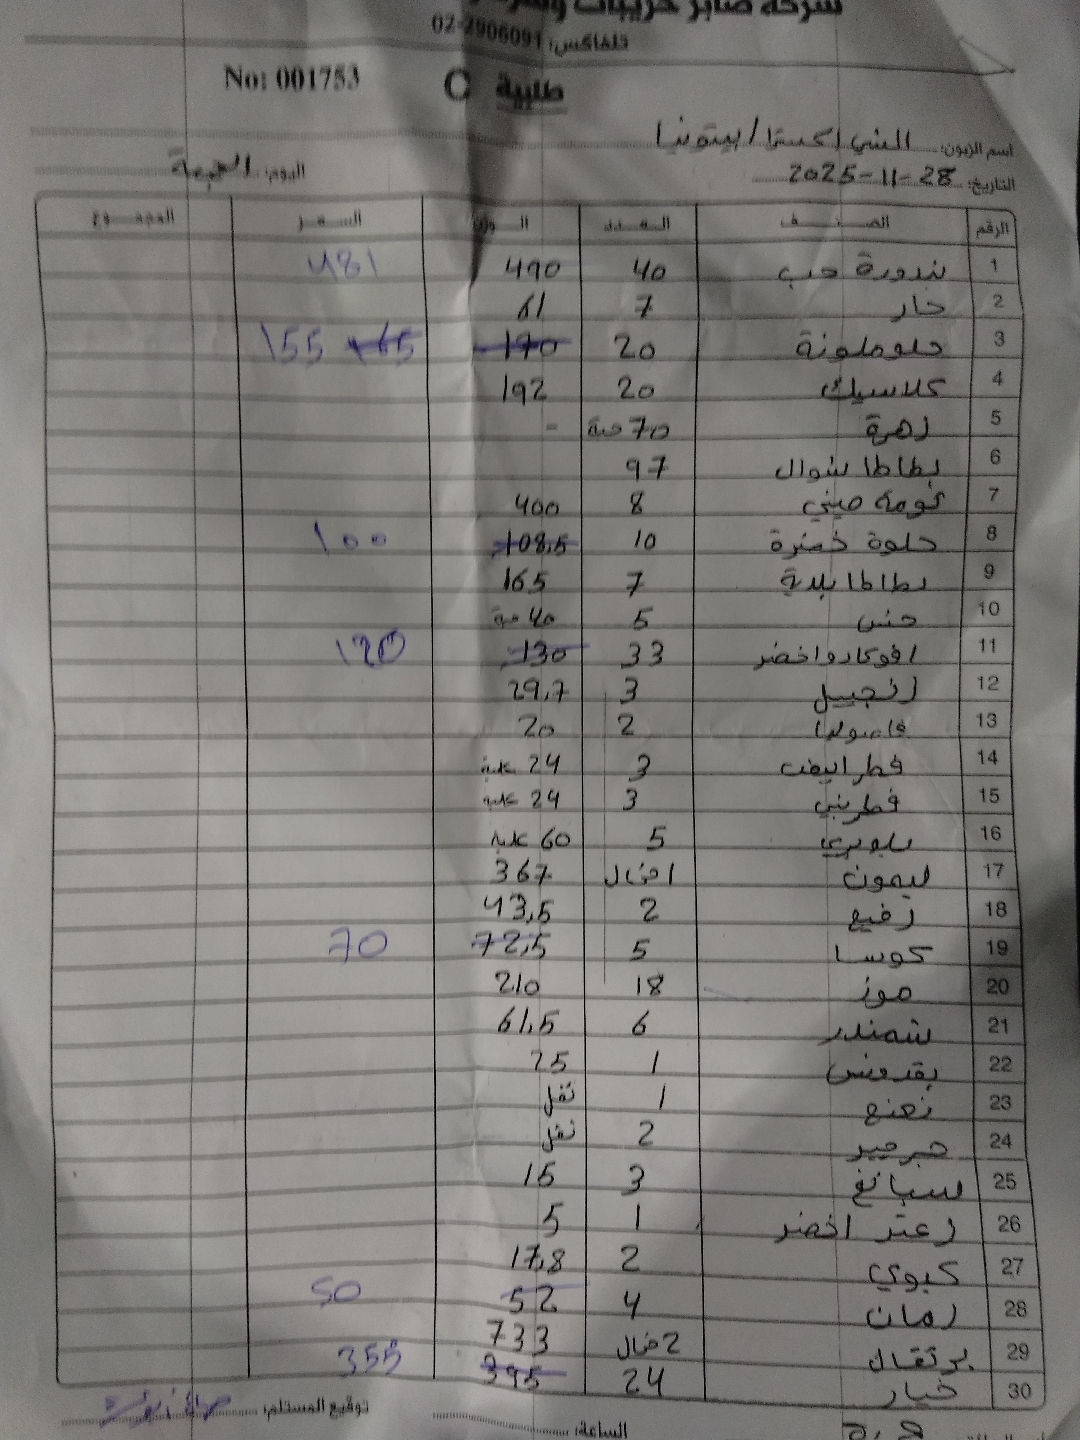 شركة صابر حريبات وشر
تلفاكس: 02-2906091
No: 001753
طلبية C
اسم الزبون: / بيتونيا
التاريخ: 28-11-2025
اليوم: الجمعة
الرقم الصنف العدد الوزن السعر المجموع
1 بندورة حب 40 490 481
2 حار 7 61
3 حلو ملونة 20 170 165 155
4 كلاسيك 20 192
5 زهرة 70 حبة -
6 بطاطا شوال 97
7 ثومة صيني 8 400
8 حلوة خضرة 10 108,5 100
9 بطاطا بلدية 7 165
10 خس 5 40 حبة
11 افوكادو اخضر 33 130 120
12 زنجبيل 3 29,7
13 فاصوليا 2 20
14 فطر ابيض 3 24 علبة
15 فطر بني 3 24 علبة
16 بلوبري 5 60 علبة
17 ليمون 1 مشطاح 367
18 رفيع 2 43,5
19 كوسا 5 72,5 70
20 موز 18 210
21 شمندر 6 61,5
22 بقدونس 1 25
23 نعنع 1
24 جرجير 2
25 سبانخ 3 15
26 زعتر اخضر 1 5
27 كيوي 2 17,8
28 رمان 4 52 50
29 برتقال 2 733
30 خيار 24 395 355
توقيع المستلم:
الساعة: